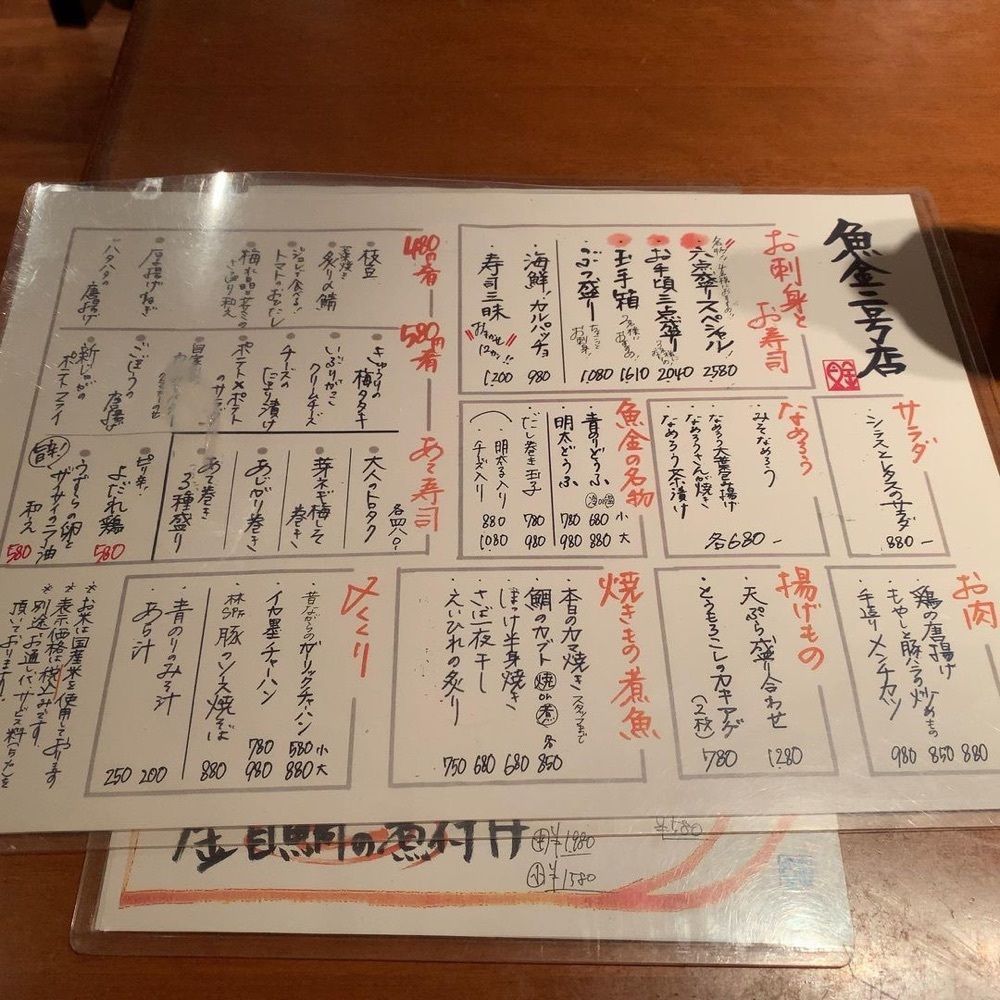 魚金三号店
お刺身と
お寿司
六点盛りスペシャル!
2580
お手頃三点盛り
2040
玉手箱
1610
ぶつ盛り
1080
海鮮カルパッチョ
980
寿司三昧
1200
サラダ
シラスとレタスのサラダ
880-
なめろう
みそなめろう
なめろう大葉包み揚げ
なめろうさんが焼き
なめろう茶漬け
各680-
魚金の名物
青のりどうふ
小 680
大 880
明太どうふ
780
980
だし巻き玉子
780
980
明太子入り
チーズ入り
880
1080
480円肴
枝豆
藁焼き
炙り〆鯖
トマトのおひたし
厚揚げねぎ
ハタハタの
唐揚げ
580円肴
きゅうりの
梅タタキ
いぶりがっこ
クリームチーズ
チーズの
たまり漬け
ポテト×ポテト
のサラダ
ごぼうの
唐揚げ
新じゃがの
ポテトフライ
あて寿司
各480-
大人のトロタク
芽ネギ梅しそ
巻き
あじがり巻き
あて巻き
3種盛り
ピリ辛!
よだれ鶏
580
旨辛!
うずらの卵と
ザーサイのラー油
和え
580
お肉
鶏の唐揚げ
880
もやしと豚バラの炒めもの
850
手造りメンチカツ
980
揚げもの
天ぷら盛り合わせ
1280
とうもろこしのカキアゲ
(2枚)
780
焼きもの煮魚
本日のカマ焼き
スタッフまで
鯛のカブト 焼or煮 各
850
ほっけ半身焼き
680
さば一夜干し
680
えいひれの炙り
750
〆くくり
昔ながらのガーリックチャーハン
小 580
大 880
イカ墨チャーハン
780
980
林SPF豚のソース焼そば
880
青のりのみそ汁
200
あら汁
250
*お米は国産米を使用しております
*表示価格は税込みです
*別途、お通し代・サービス料(5%)を
頂いております。
金目鯛の煮付け
中 ¥1980
小 ¥1580